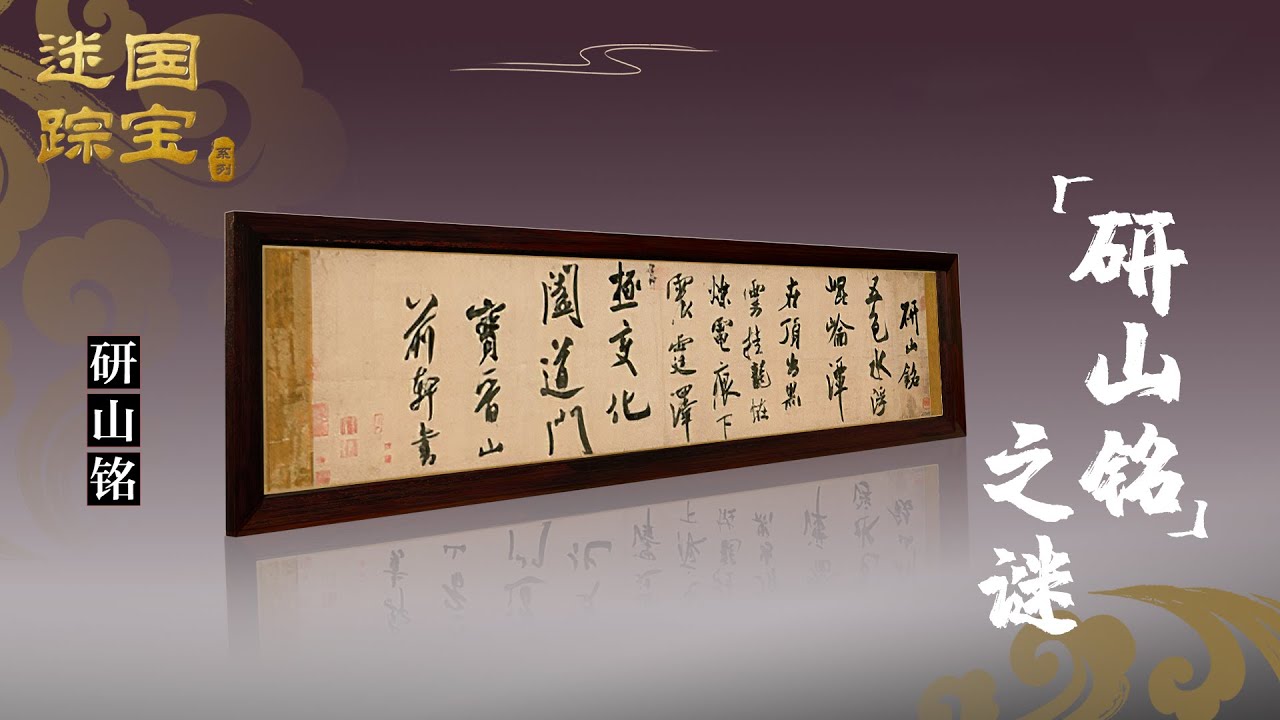 国宝
迷踪
系列
研山銘
五色水浮
崐崘潭
在頂出黑
雲挂龍怪
爍電痕下
震霆澤
極變化
闔道門
寶晉山
前軒書
研山铭
「研山铭」
之谜